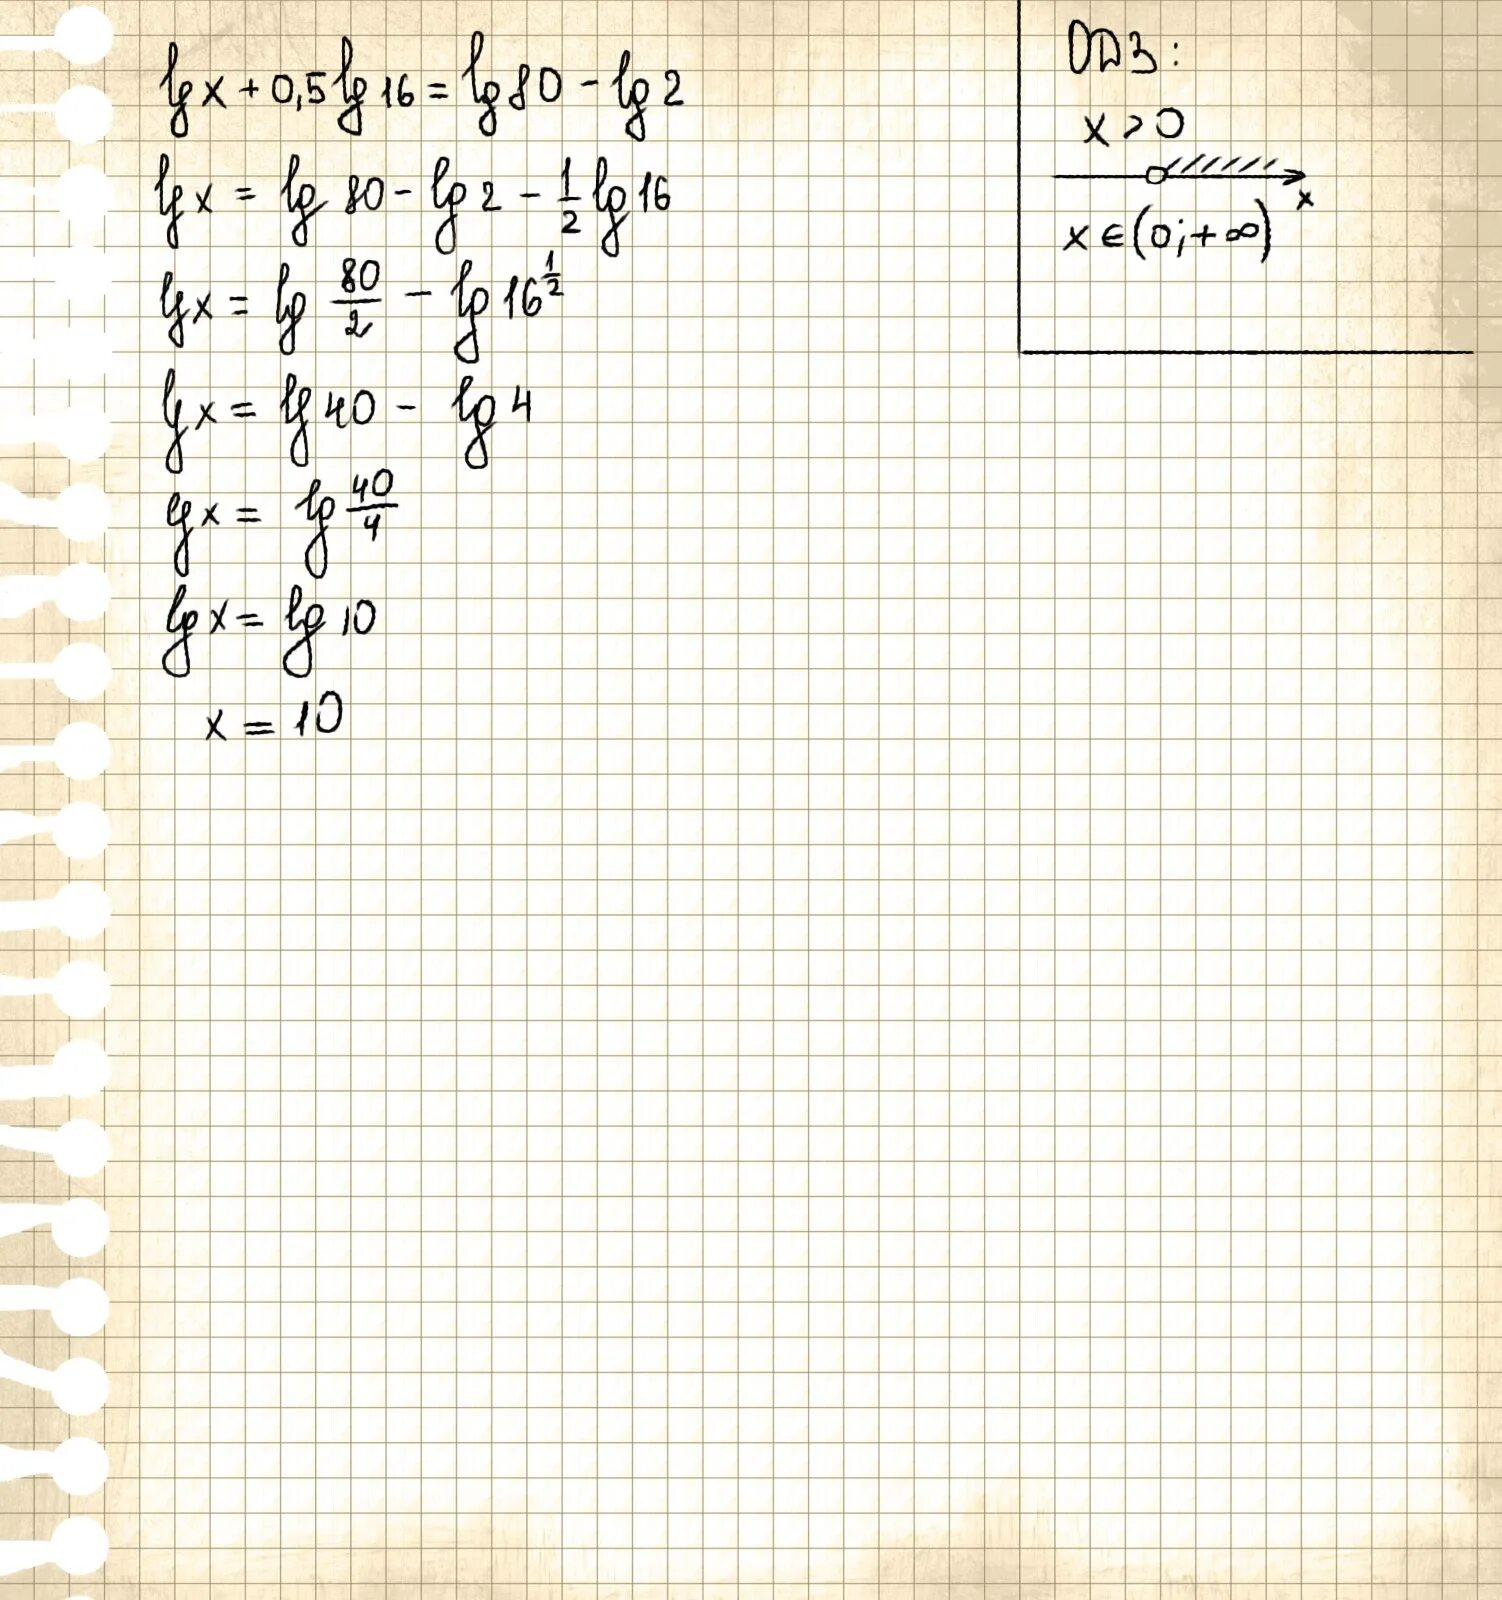 lg x + 0,5 lg 16 = lg 80 - lg 2
lg x = lg 80 - lg 2 - 1/2 lg 16
lg x = lg 80/2 - lg 16^1/2
lg x = lg 40 - lg 4
lg x = lg 40/4
lg x = lg 10
x = 10
ОДЗ:
x > 0
x
x ∈ (0; + ∞)